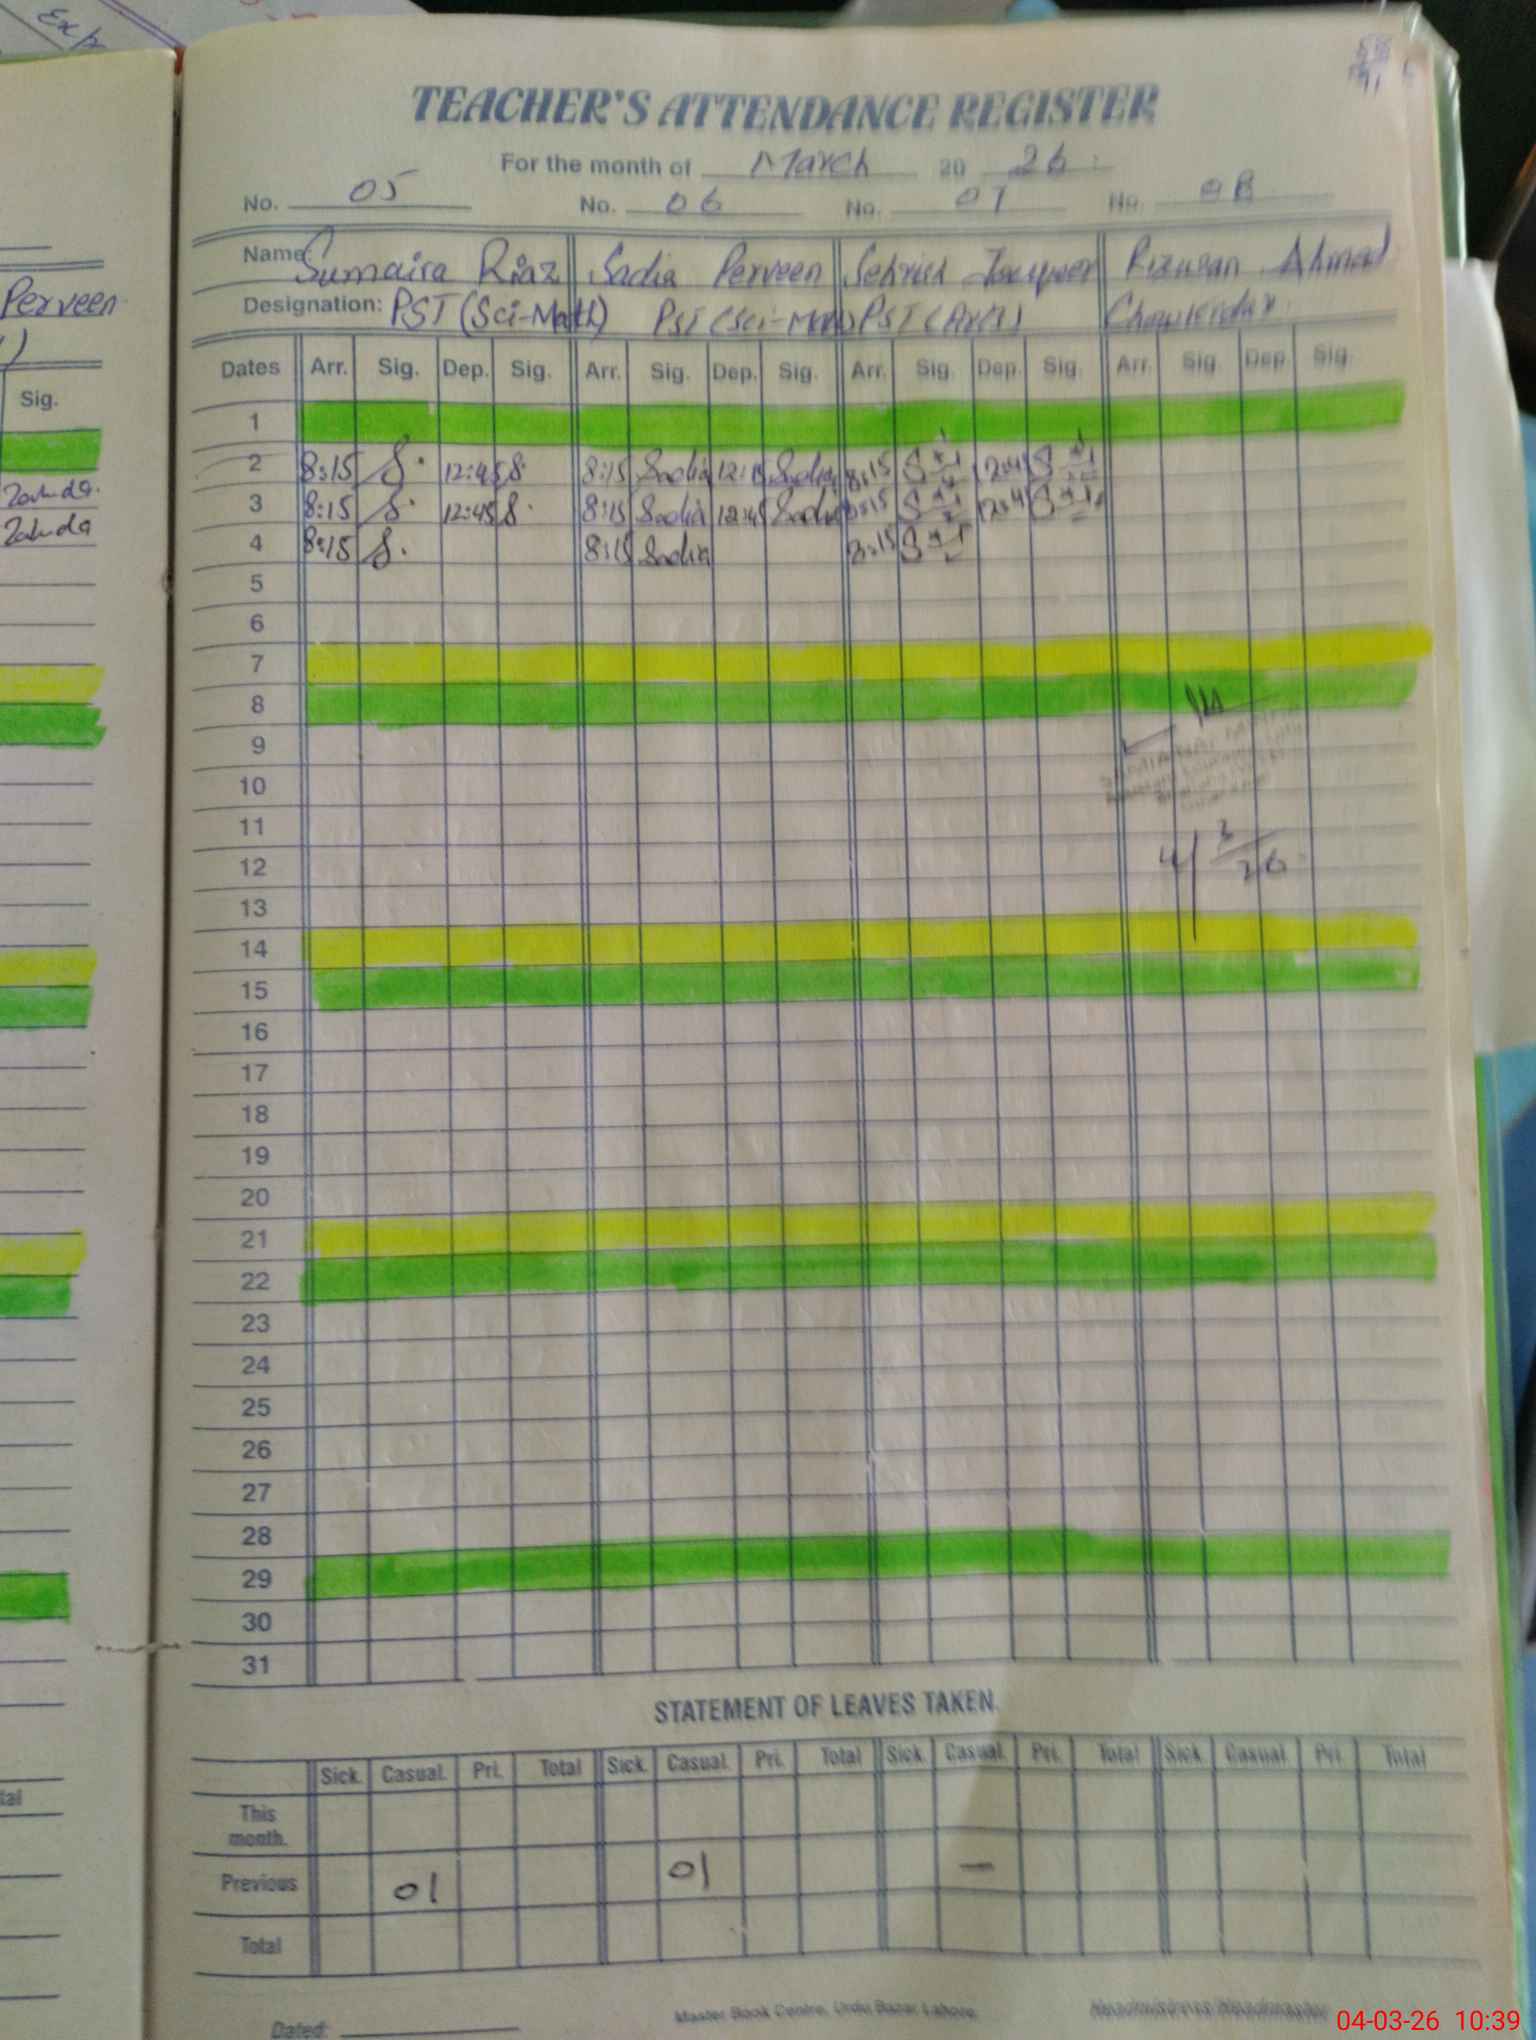 Exp
Perveen
Sig.
Zahida
Zahida
TEACHER'S ATTENDANCE REGISTER
For the month of March 20 26
No. 05 No. 06 No. 07 No. 08
Name Sumaira Riaz Sadia Perveen Sehrish Rizwan Ahmad
Designation: PST (Sci-Math) PST (Sci-Math) PST (Arts) Chowkidar
Dates Arr. Sig. Dep. Sig. Arr. Sig. Dep. Sig. Arr. Sig. Dep. Sig. Arr. Sig. Dep. Sig.
1
2 8:15 S. 12:45 S. 8:15 Sadia Sadia 8:15
3 8:15 S. 12:45 S. 8:15 Sadia 12:45 Sadia 8:15
4 8:15 S. 8:15 Sadia 8:15
5
6
7
8
9
10
11
12
4/3/26
13
14
15
16
17
18
19
20
21
22
23
24
25
26
27
28
29
30
31
STATEMENT OF LEAVES TAKEN.
Sick. Casual. Pri. Total Sick. Casual. Pri. Total Sick. Casual. Pri. Total Sick. Casual. Pri. Total
This
month.
Previous 01 01 —
Total
Dated:
Master Book Centre, Urdu Bazar Lahore.
Headmistress/Headmaster
04-03-26 10:39